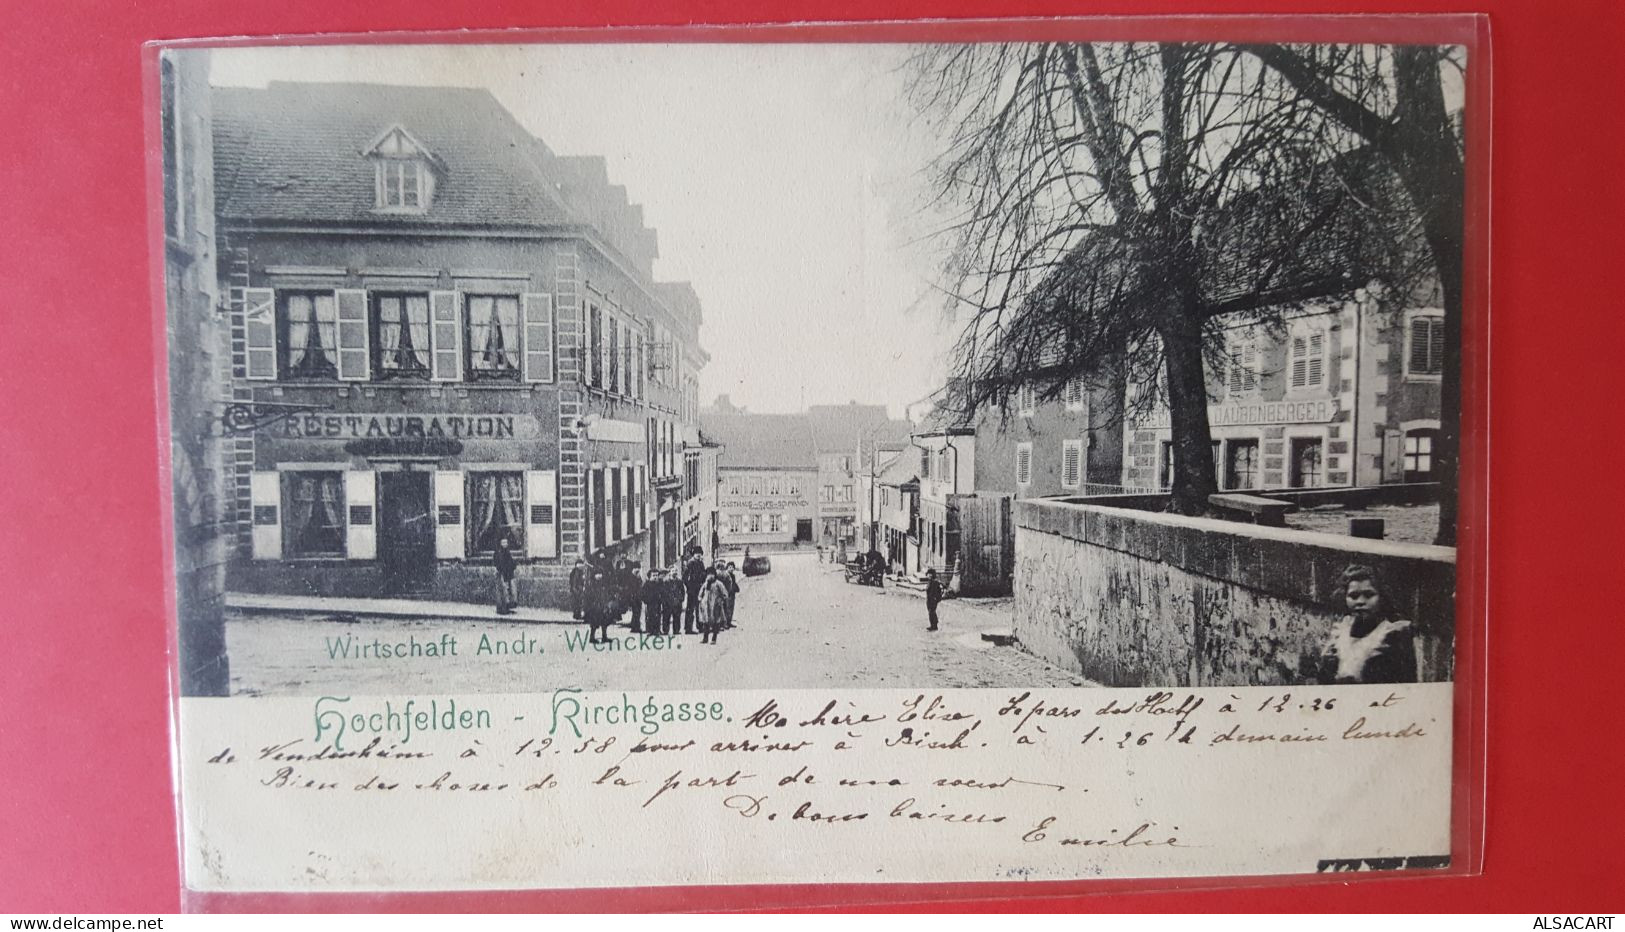 RESTAURATION
DAUBENBERGER
Wirtschaft Andr. Wencker.
Hochfelden - Kirchgasse. Ma chère Elise, Je pars de Hochf à 12.26 et
de Wendenheim à 12.58 pour arriver à Bisch. à 1.26 h demain lundi
Bien des choses de la part de ma soeur.
De bons baisers
Emilie
ALSACART